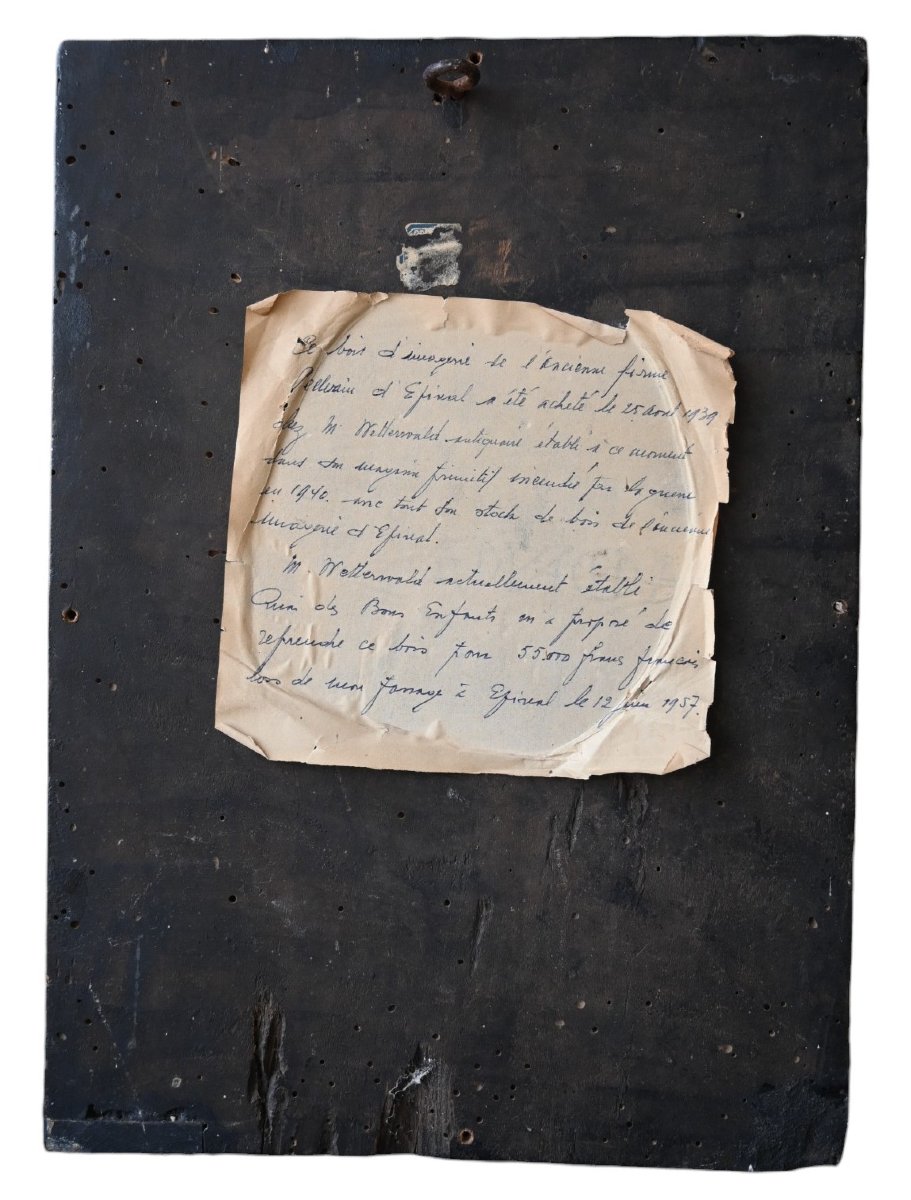 Ce bois d'imagerie de l'ancienne firme
Pellerin d'Epinal a été acheté le 25 aout 1939
chez Mr Wetterwald antiquaire établi à ce moment
dans son magasin primitif incendié par la guerre
en 1940. avec tout son stock de bois de l'ancienne
imagerie d'Epinal.
M. Wetterwald actuellement établi
Quai des Bons Enfants m'a proposé de
reprendre ce bois pour 55.000 francs français
lors de mon passage à Epinal le 12 juin 1957.